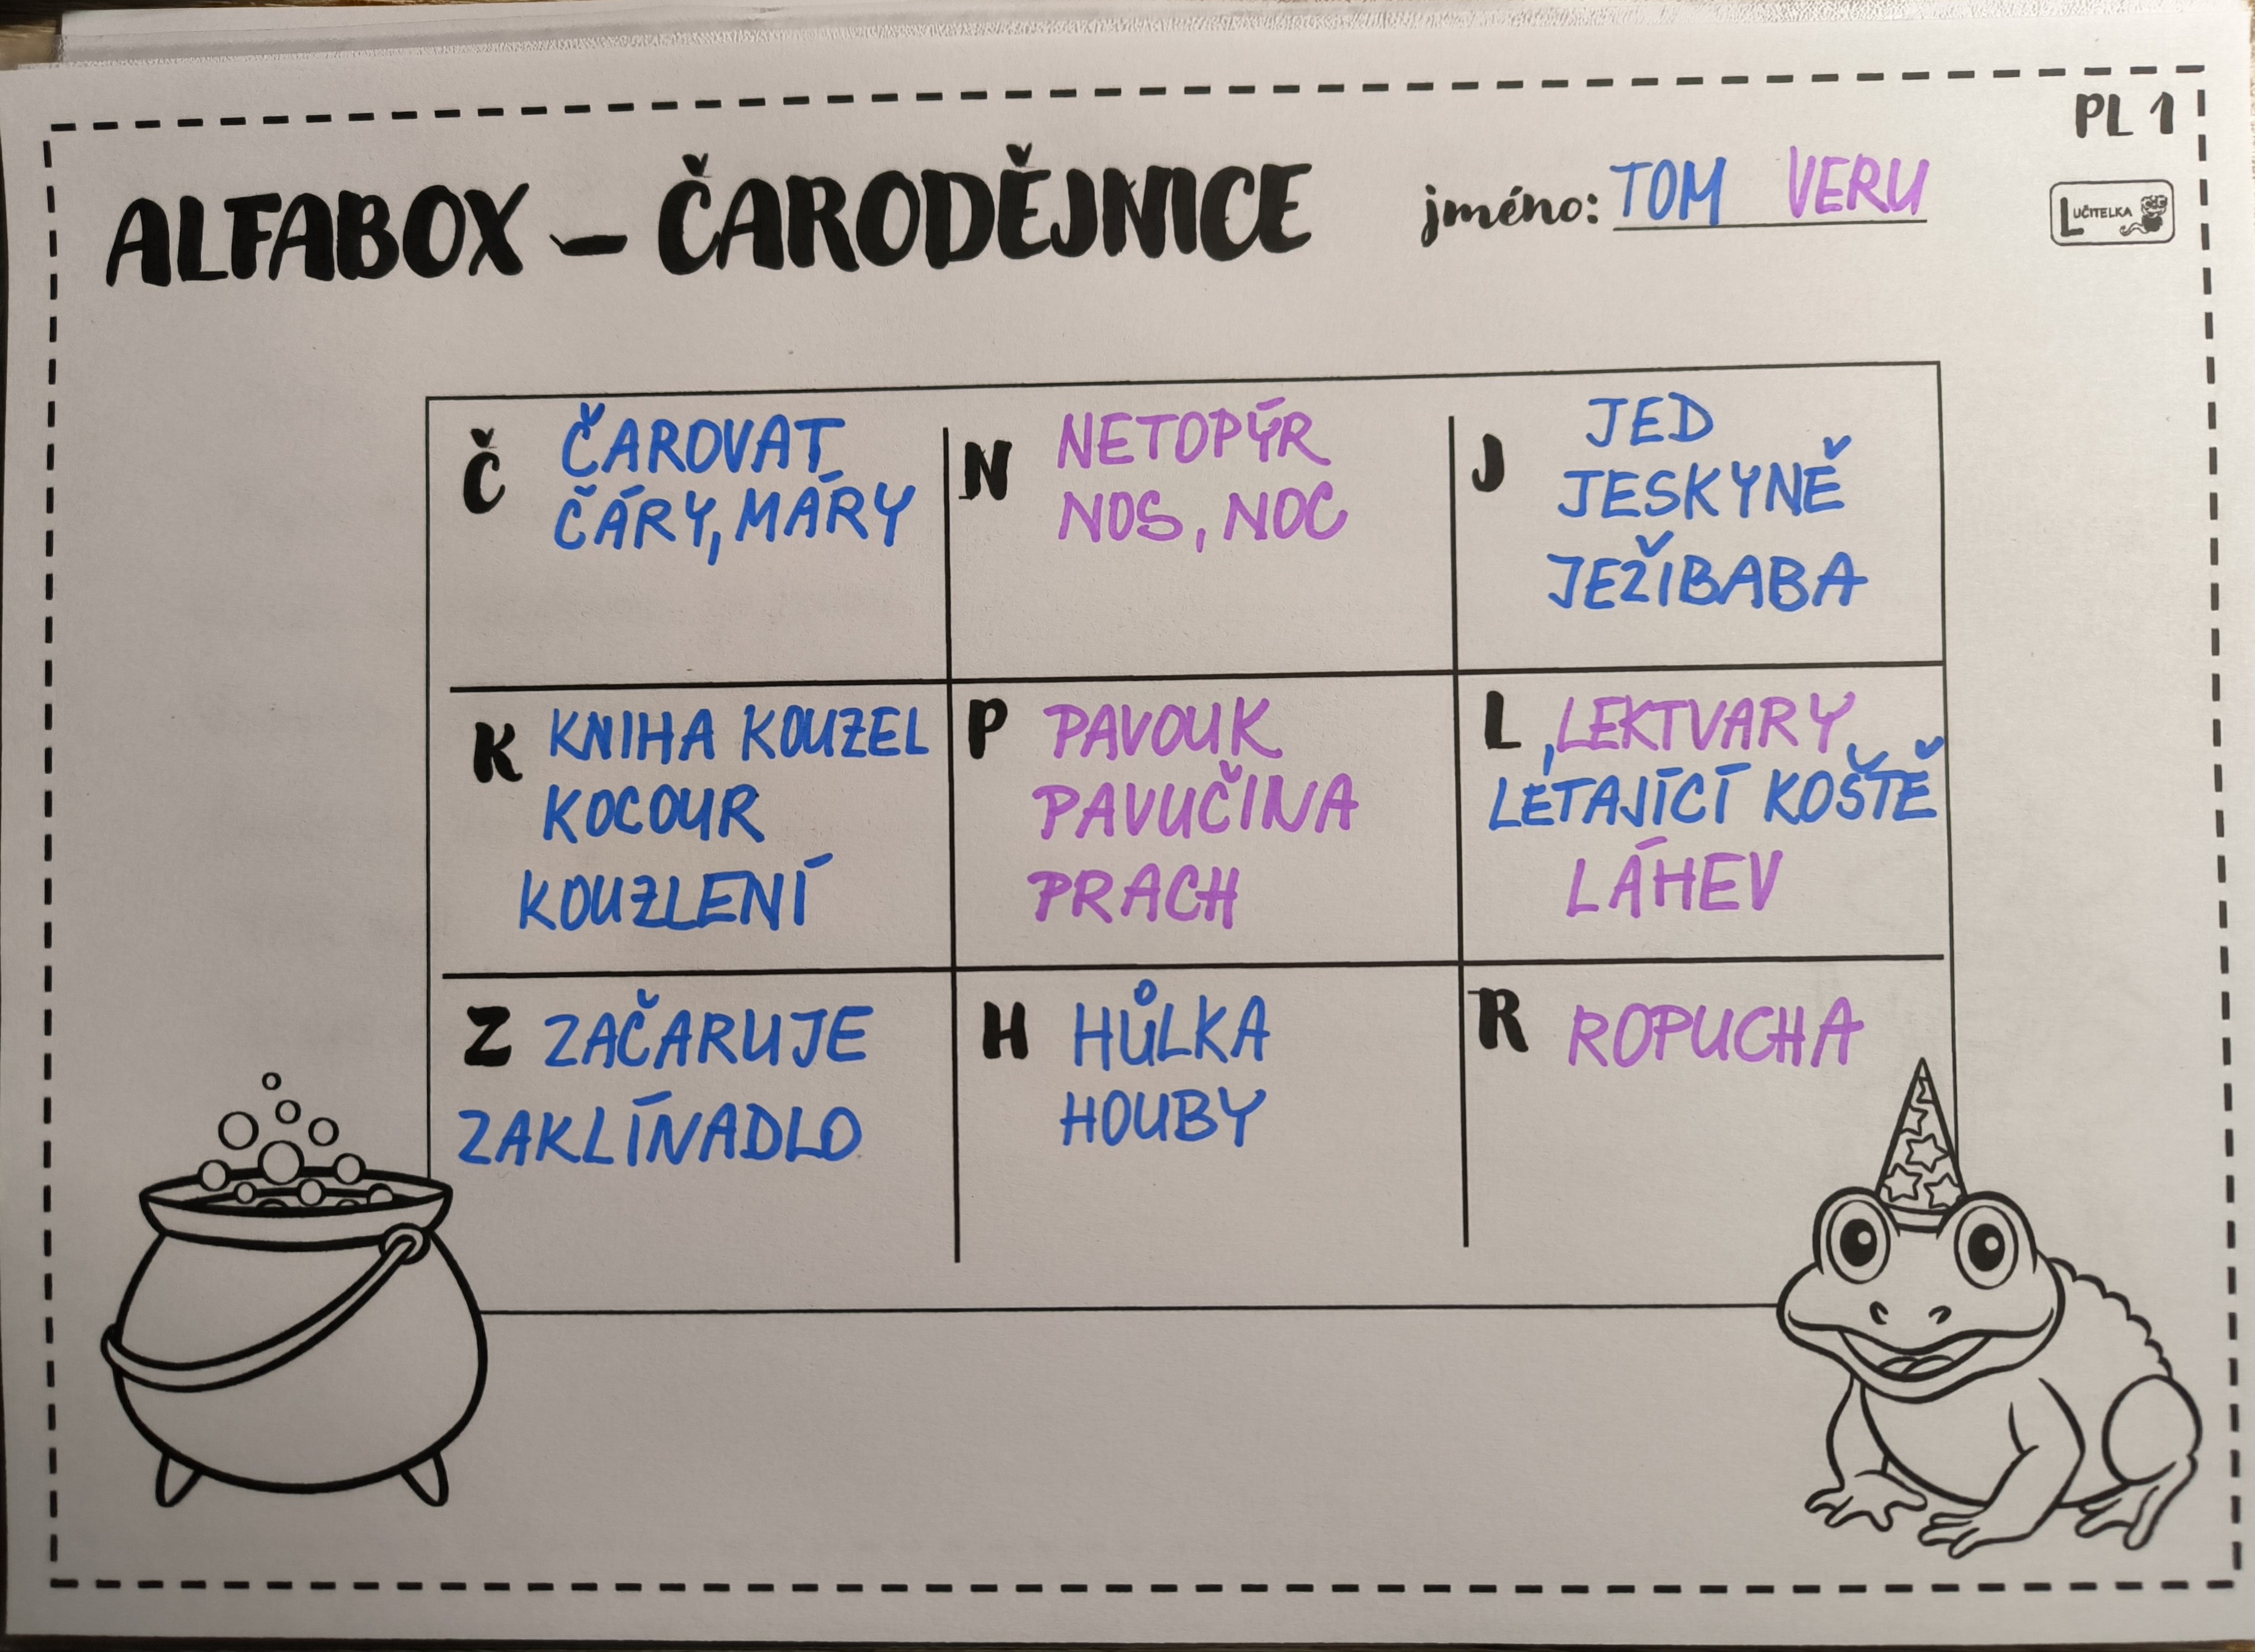 PL 1
ALFABOX – ČARODĚJNICE jméno: TOM VERU
LUČITELKA
Č ČAROVAT
ČÁRY, MÁRY
N NETOPÝR
NOS, NOC
J JED
JESKYNĚ
JEŽIBABA
K KNIHA KOUZEL
KOCOUR
KOUZLENÍ
P PAVOUK
PAVUČINA
PRACH
L LEKTVARY
LÉTAJÍCÍ KOŠTĚ
LÁHEV
Z ZAČARUJE
ZAKLÍNADLO
H HŮLKA
HOUBY
R ROPUCHA